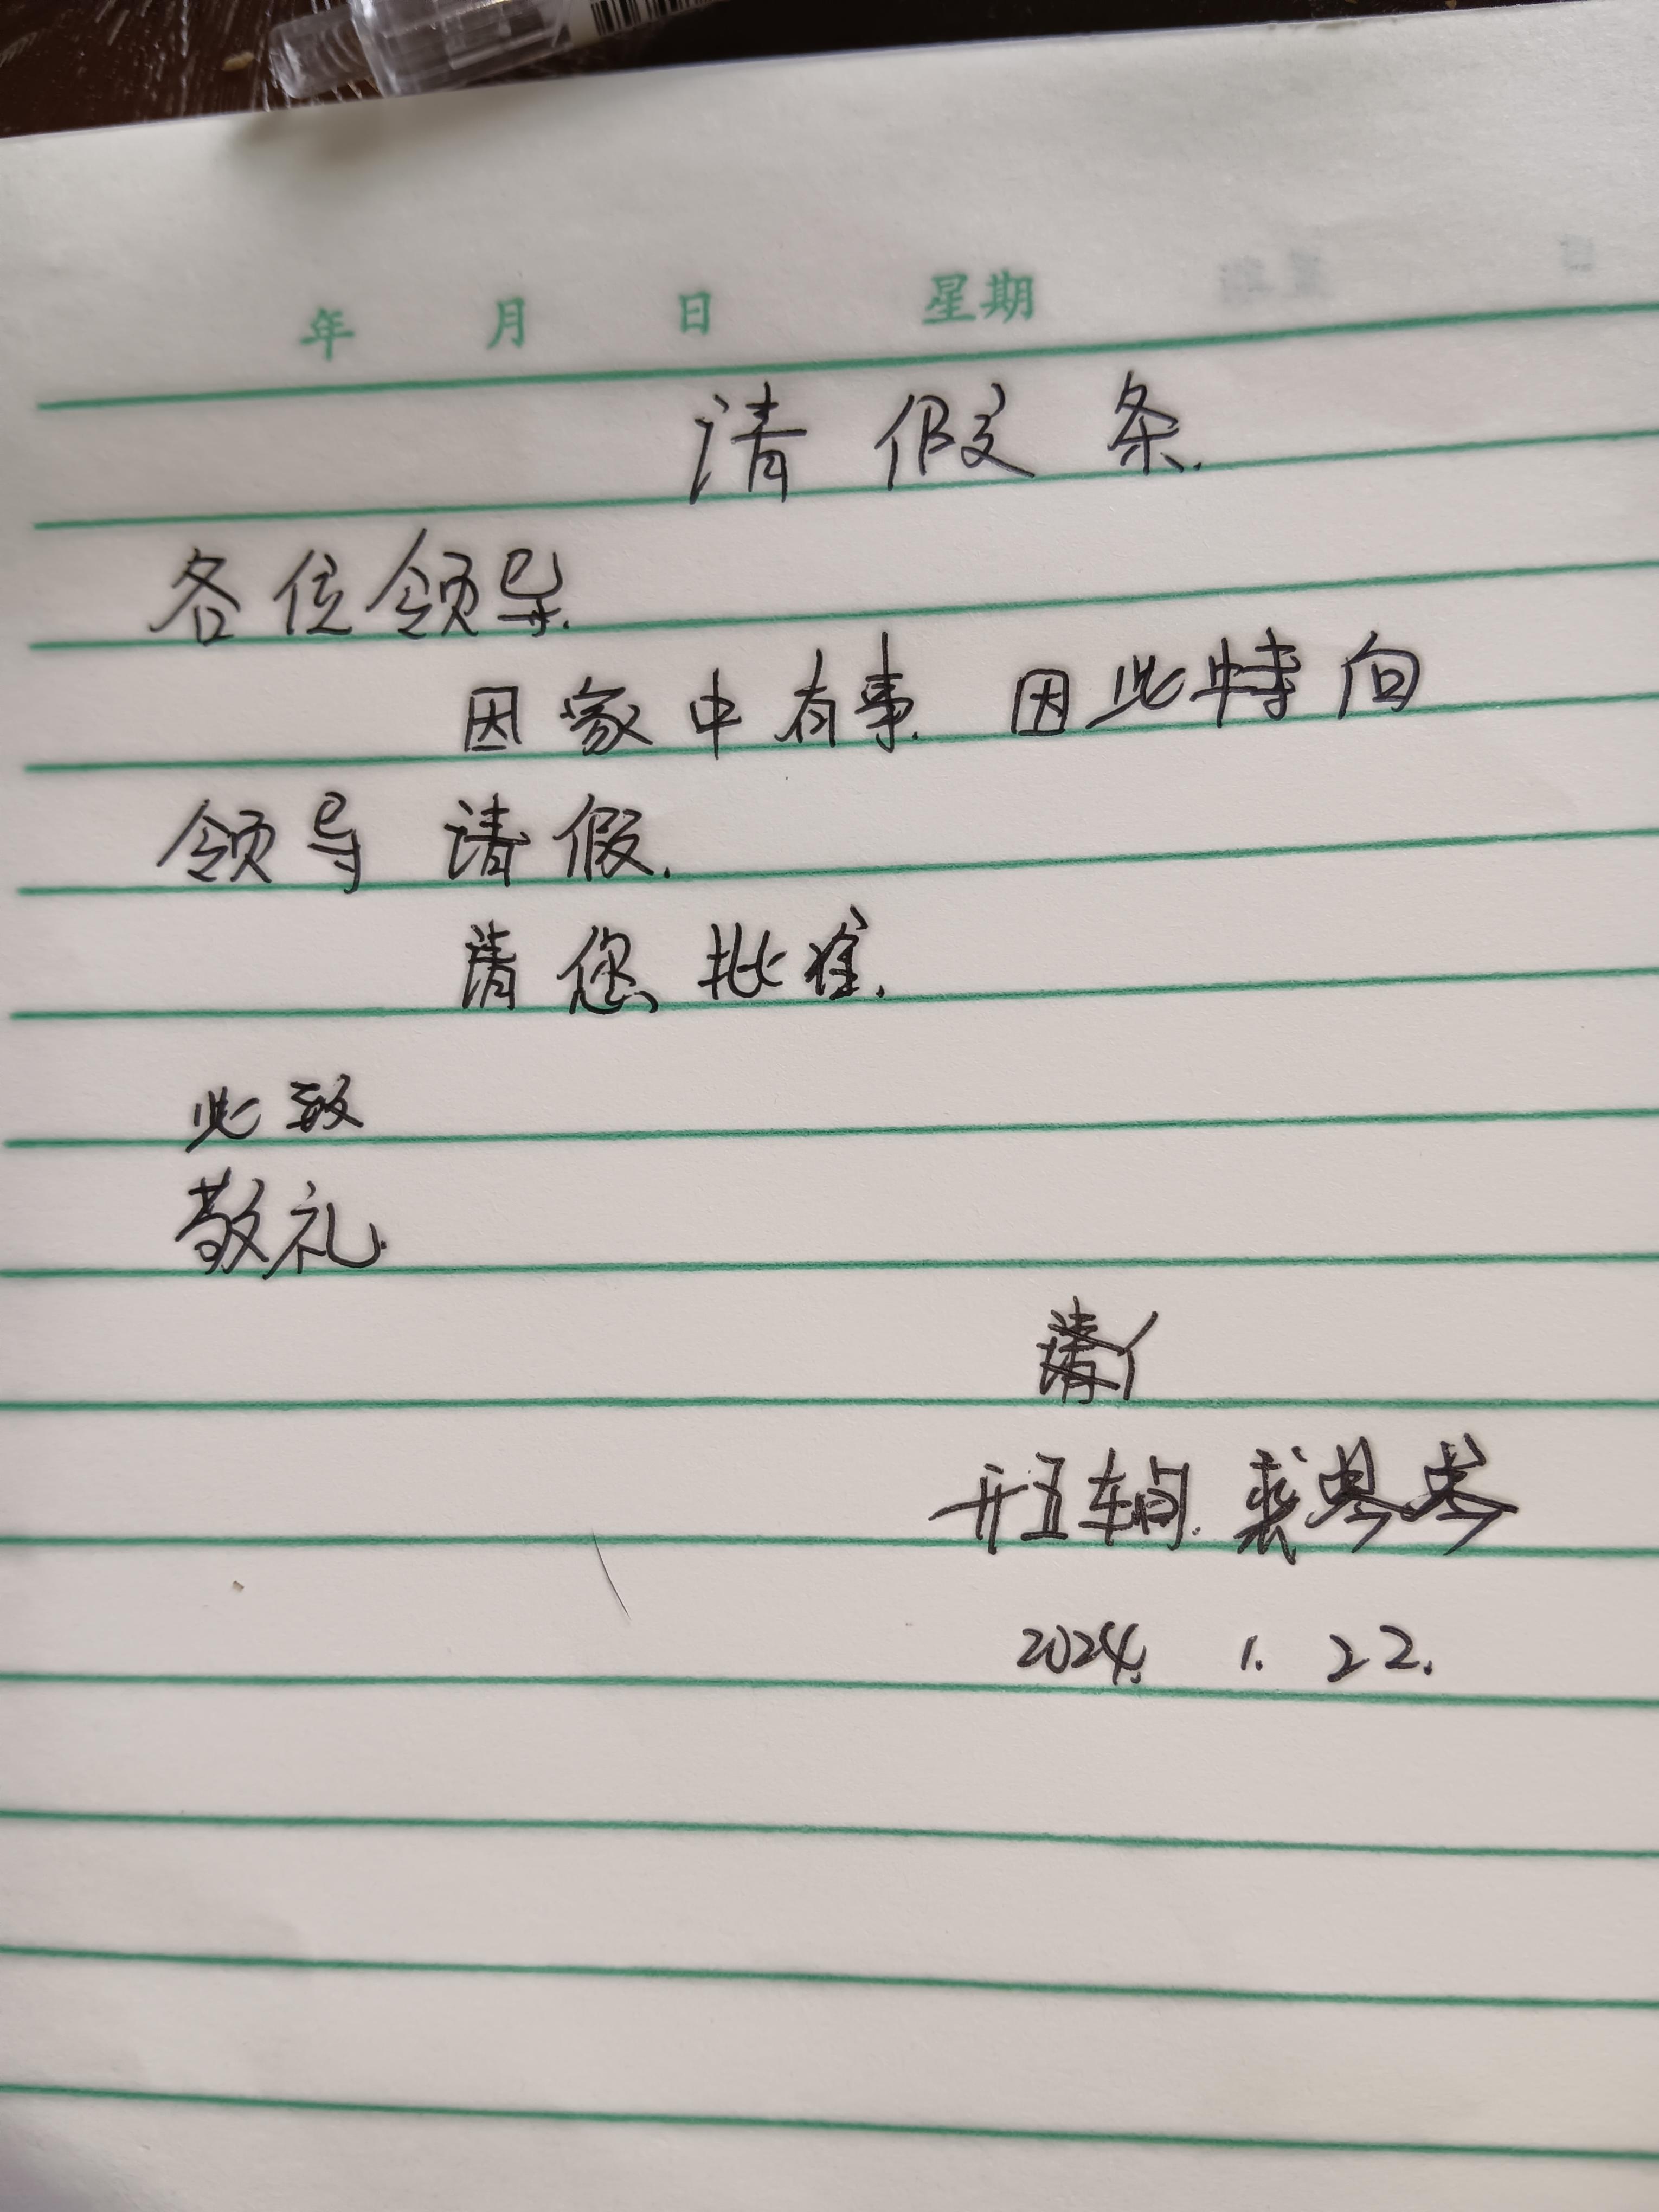 年 月 日 星期
请假条.
各位领导.
因家中有事. 因此特向
领导 请假.
请您批准.
此致
敬礼.
开五车间.
2024. 1. 22.